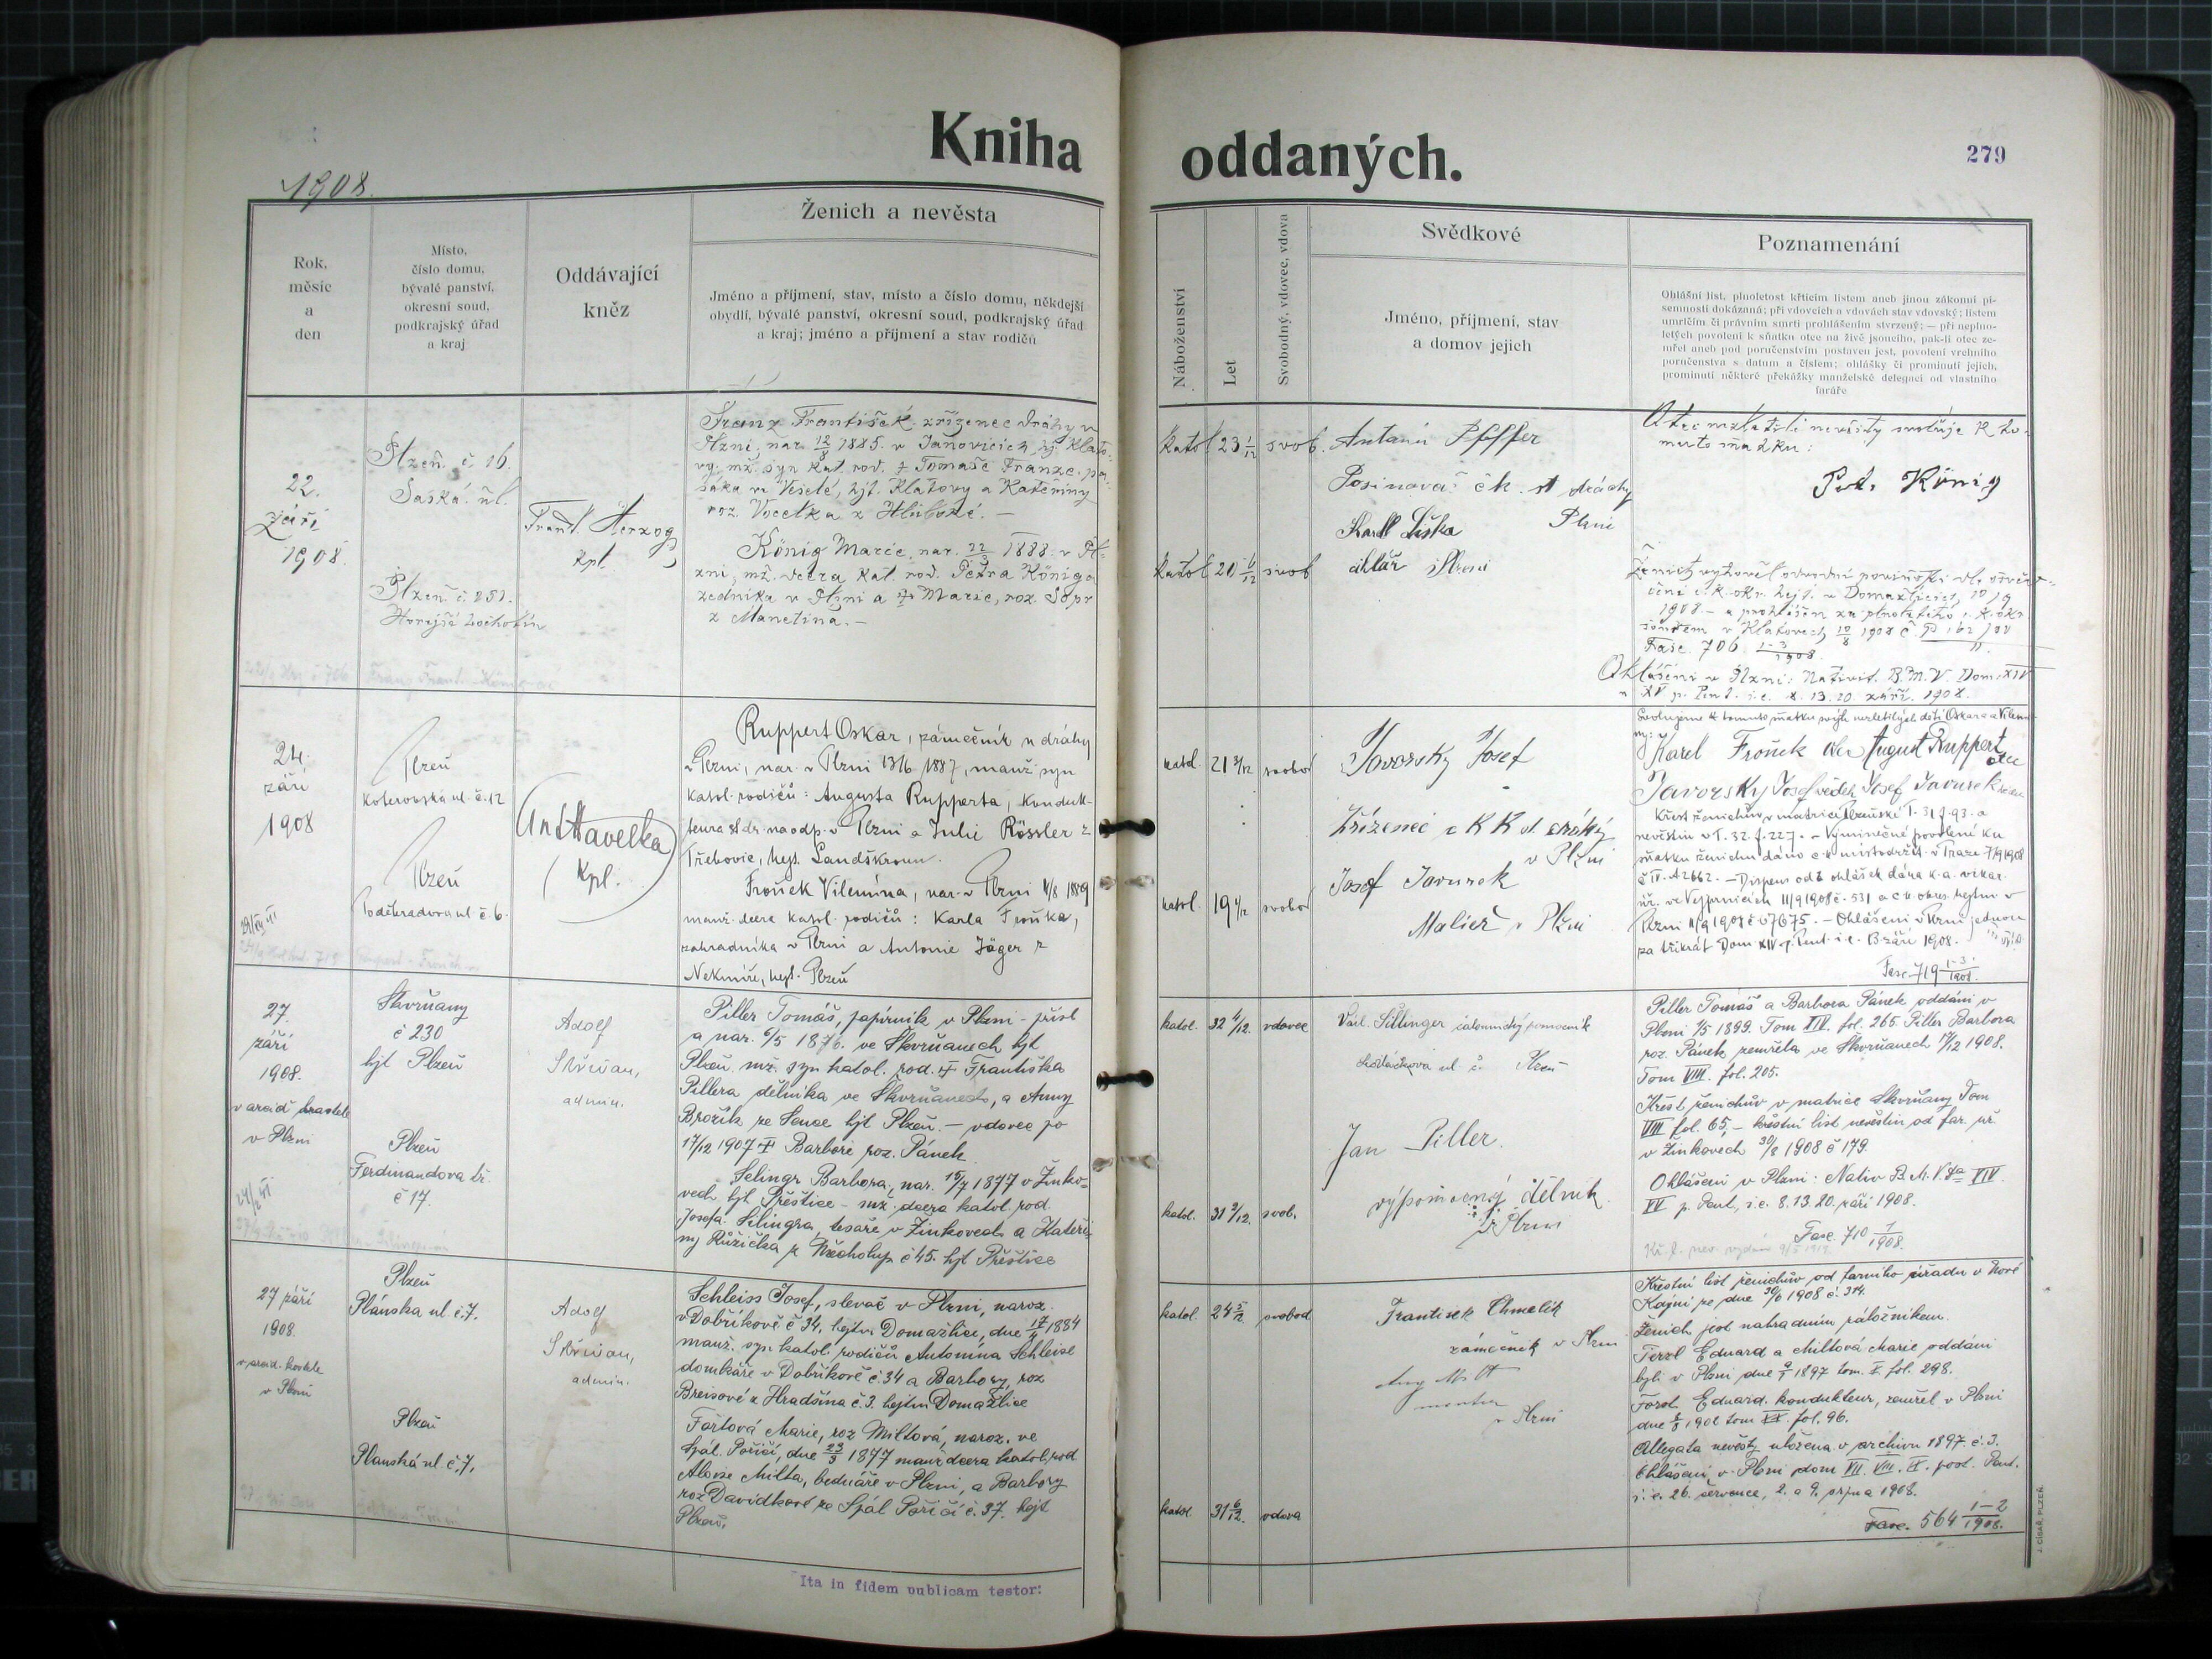 Kniha oddaných.
279
1908.
Rok,
měsíc
a
den
Místo,
číslo domu,
bývalé panství,
okresní soud,
podkrajský úřad
a kraj
Oddávající
kněz
Ženich a nevěsta
Jméno a příjmení, stav, místo a číslo domu, někdejší
obydlí, bývalé panství, okresní soud, podkrajský úřad
a kraj; jméno a příjmení a stav rodičů
Náboženství
Let
Svobodný, vdovec, vdova
Svědkové
Jméno, příjmení, stav
a domov jejich
Poznamenání
Ohlášní list, plnoletost křticím listem aneb jinou zákonní pí-
semností dokázaná; při vdovcích a vdovách stav vdovský; listem
umrlčím či právním smrti prohlášením stvrzený; — při neplno-
letých povolení k sňatku otce na živě jsoucího, pak-li otec ze-
mřel aneb pod poručenstvím postaven jest, povolení vrchního
poručenstva s datum a číslem; ohlášky či prominutí jejich,
prominutí některé překážky manželské delegací od vlastního
faráře
22.
září
1908.
Plzeň č. 16.
Saská ul.
Plzeň č. 251.
Frant. Herzog
kpl.
Franz František zřízenec dráhy v
Plzni, nar. 12/8 1885 v Janovicích, hj. Klato-
vy, mž. syn kat. rod. † Tomáše Franze, pa-
sáka ve Veselé, hjt. Klatovy a Kateřiny
roz. Vocelka z Hluboké. —
König Marie, nar. 22/3 1888 v Pl-
zni, mž. dcera kat. rod. Petra Königa
zedníka v Plzni a † Marie, roz. Šopr
z Manetína. —
katol 23 1/12 svob.
katol 20 6/12 svob
Antonín Pfeffer
Posinovač ck. st dráhy
Plzni
Karel Liška
cihlář v Plzni
Otec nezletilé nevěsty svoluje k to-
muto sňatku:
Petr König
1908 — a prohlášen za plnoletého c. k. okr.
soudem v Klatovech 10/8 1908 č. P 162/08
Fasc. 706 1-3/1908.
Ohlášeni v Plzni: Nativit. B.M.V. Dom. XIV
a XV p. Pent. i. e. 8. 13. 20. září 1908.
24.
září
1908
Plzeň
Koterovská ul. č. 12
Plzeň
Poděbradova ul. č. 6.
Ant Havelka
Kpl.
Ruppert Oskar, zámečník u dráhy
v Plzni, nar. v Plzni 13/6 1887, manž. syn
katol. rodičů: Augusta Rupperta, konduk-
teura st. dr. na odp. v Plzni a Julie Rössler z
Třebovic, hejt. Landškroun.
Froněk Vilemína, nar. v Plzni 4/8 1889
manž. dcera katol. rodičů: Karla Froňka,
zahradníka v Plzni a Antonie Jäger z
Nekmíře, hejt. Plzeň
katol. 21 3/12 svobod
katol. 19 1/12 svobod
Javorsky Josef
Zřízenec c K K st dráhy
v Plzni
Josef Javurek
Malíř v Plzni
Svolujeme k tomuto sňatku svých nezletilých dětí Oskara a Vilem-
Karel Froněk otec August Ruppert
otec
Javorsky Josef svědek Josef Javurek svědek
Křest ženichův v matrice Plzeňské T. 31 f. 93. a
nevěstin v T. 32. f. 227. — Výminečné povolení ku
sňatku ženichu dáno c. k. místodržit. v Praze 7/9 1908
č. IV. A 2662. — Dispens od 2 ohlášek dána k. a. vikar.
úř. ve Vejprnicích 11/9 1908 č. 531 a c. k. okres. hejtm v
Plzni 11/9 1908 č. 67675. — Ohlášeni v Plzni jednou
za třikrát Dom XIV p. Pent. i. e. 13. září 1908.
Fasc. 719 1-3/1908.
27.
září
1908.
v arcid. kostele
v Plzni
Skvrňany
č 230
hjt Plzeň
Plzeň
Ferdinandova tř.
č 17.
Adolf
Skřivan,
admin.
Piller Tomáš, papírník v Plzni - přísl
a nar. 6/5 1876. ve Skvrňanech hjt
Plzeň. mž. syn katol. rod. † Františka
Pillera dělníka ve Skvrňanech, a Anny
Brožík ze Sence hjt Plzeň. — vdovec po
17/12 1907 † Barboře roz. Pánek
Šelingr Barbora, nar. 15/7 1877 v Žinko-
vech hjt Přeštice - mž. dcera katol. rod.
Josefa Šelingra, tesaře v Žinkovech a Kateři-
ny Růžička z Nečholup č 45. hjt Přeštice
katol. 32 4/12. vdovec
katol. 31 2/12. svob.
Jan Piller.
výpomocný dělník
z Plzni
Piller Tomáš a Barbora Pánek oddáni v
Plzni 1/5 1899. Tom III. fol. 265. Piller Barbora
roz. Pánek zemřela ve Skvrňanech 17/12 1908.
Tom VIII. fol. 205.
Křest ženichův v matrice Skvrňany Tom
VIII fol. 65, — křestní list nevěstin od far. úř.
v Žinkovech 30/8 1908 č 179.
Ohlášeni v Plzni: Nativ B. M. V. Dca XIV.
XV p. Pent, i. e. 8. 13. 20. září 1908.
Fasc. 710 1/1908.
27 září
1908.
v arcid. kostele
v Plzni
Plzeň
Plánska ul. č. 7.
Plzeň
Planská ul. č. 7.
Adolf
Skřivan,
admin.
Schleiss Josef, slevač v Plzni, naroz.
v Dobříkově č 34, hejtm. Domažlice, dne 17/4 1884
manž. syn katol. rodičů Antonína Schleise
domkáře v Dobříkově č. 34 a Barbory, roz
Breisové z Hradšína č. 3. hejtm Domažlice
Fořtová Marie, roz Miltová, naroz. ve
Spál. Poříčí, dne 23/3 1877 manž dcera katol. rod
Aloise Milta, bednáře v Plzni, a Barbory
roz Davídkové ze Spál Poříčí č. 37. hejt
Plzeň.
katol. 24 5/12 svobod
katol. 31 6/12. vdova
František Chmelík
zámečník v Plzni
v Plzni
Křestní list ženichův od farního úřadu v Nové
Kdyni ze dne 30/6 1908 č. 314.
Ženich jest náhradním záložníkem.
byli v Plzni dne 9/5 1897 tom. X. fol. 298.
Eduard, kondukteur, zemřel v Plzni
fol. 96.
Allegata nevěsty uložena v archivu 1897. č. 3.
Ohlášeni v Plzni dom VII. VIII. IX. post. Pent.
i. e. 26. července, 2. a 9. srpna 1908.
Fasc. 564 1-2/1908.
Ita in fidem publicam testor:
J. CÍSAŘ, PLZEŇ.